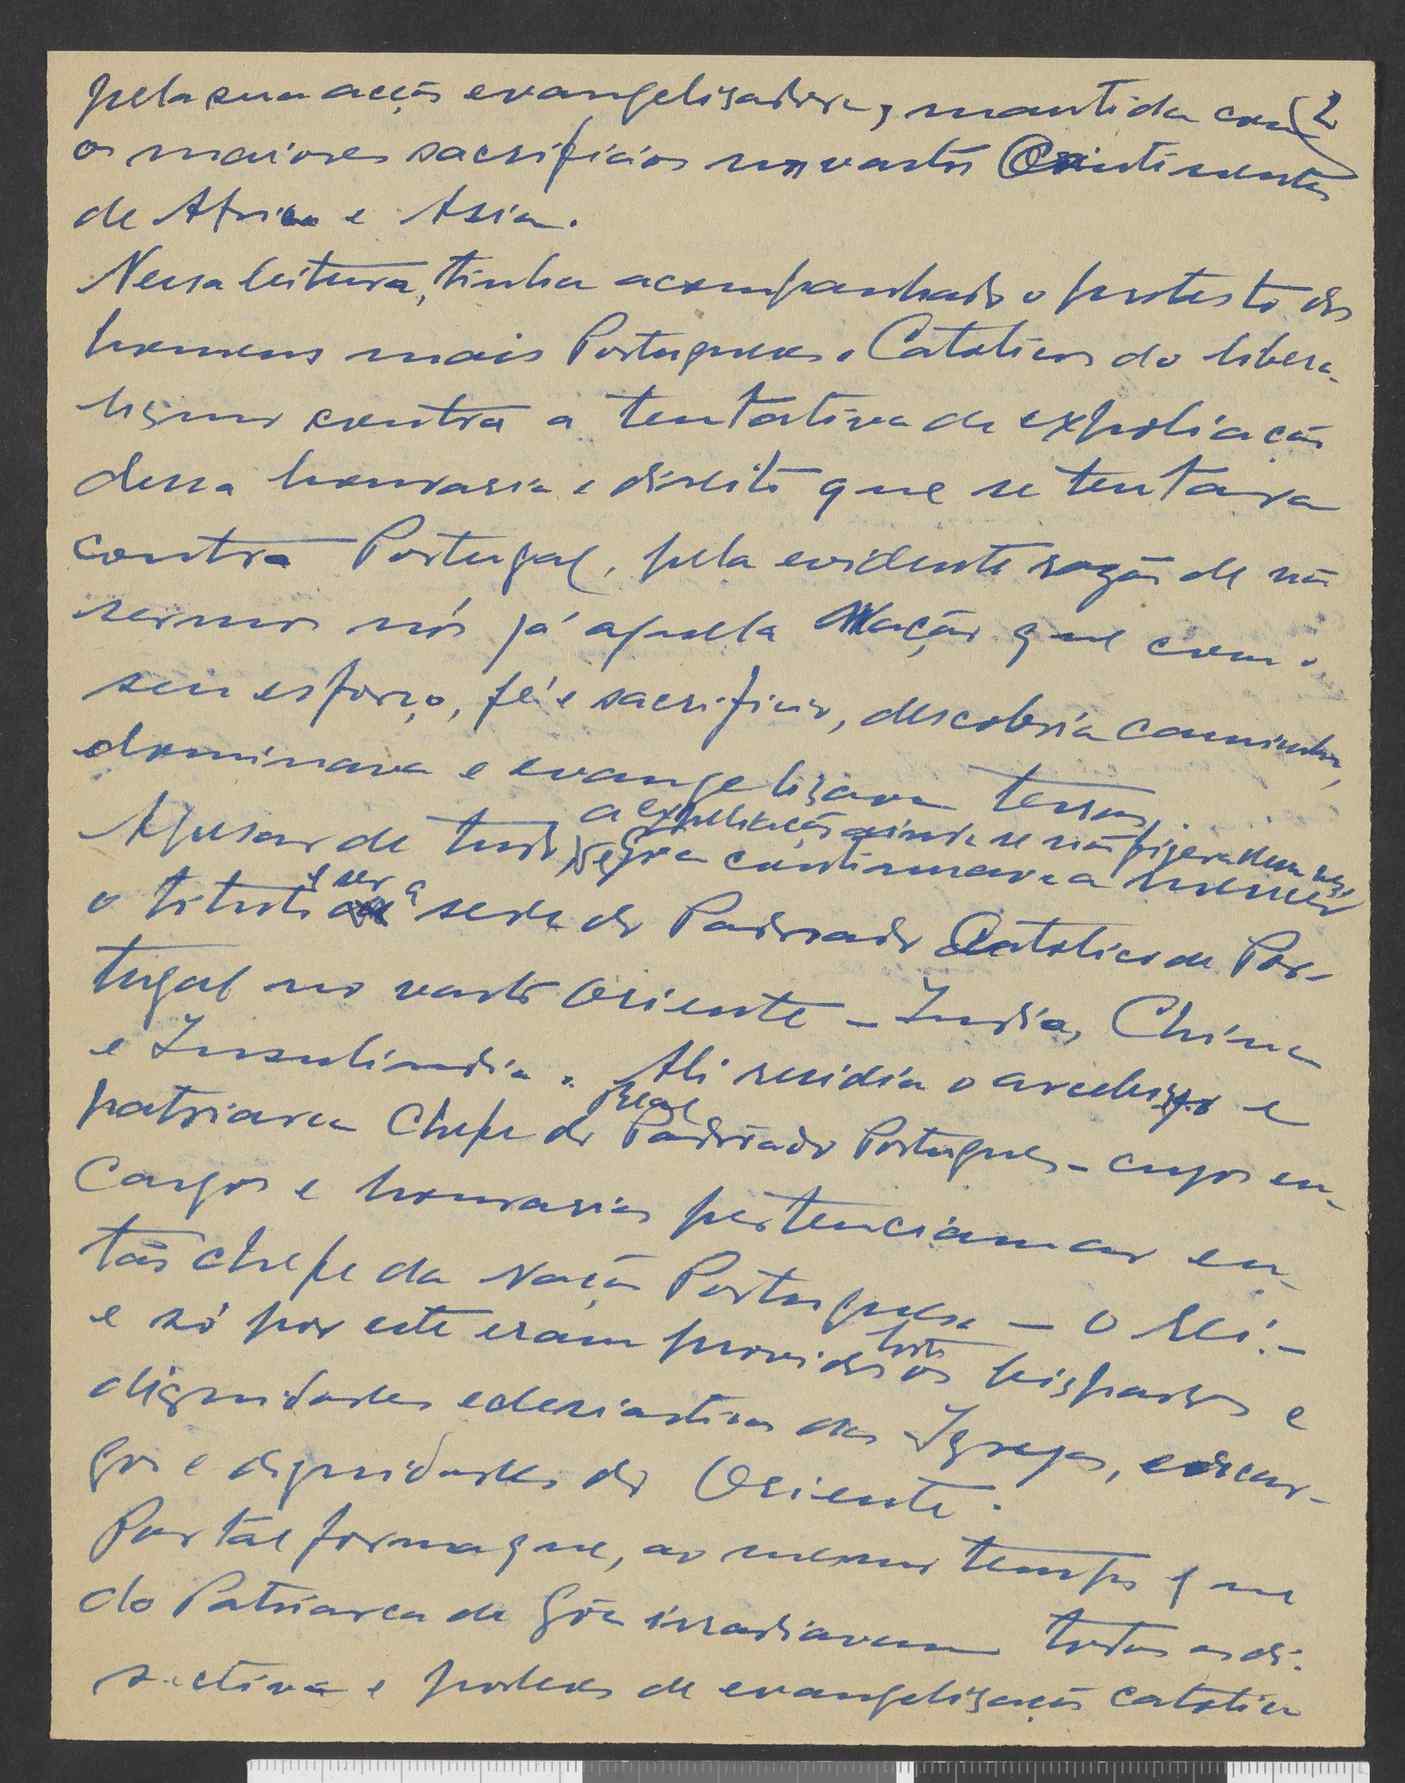 2
pela sua acção evangelisadora, mantida com
os maiores sacrificios nos vastos Continentes
de Africa e Asia.
Nessa leitura, tinha acompanhado o protesto dos
homens mais Portugueses e Catolicos do libera-
lismo contra a tentativa de expoliação
dessa honraria e direito que se tentava
contra Portugal, pela evidente razão de não
sermos nós já aquela Nação que com o
seu esforço, fé e sacrificio, descobria caminhos,
dominava e evangelizava terras.
a expoliação ainda se não fizera dessa vez
Apesar de tudo, e Gôa continuava a merecer
e ser a
o titulo sede do Padroado Catolico de Por-
tugal no vasto Oriente – India, China
e Insulindia. Ali residia o arcebispo e
Real
patriarca Chefe do Padroado Português – cujos en-
cargos e honrarias pertenciam ao en-
tão chefe da Nação Portuguesa – O Rei. –
todos
e só por este eram providos os bispados e
dignidades eclesiasticas das Igrejas, encar-
gos e dignidades do Oriente.
Por tal forma que, ao mesmo tempo que
do Patriarca de Gôa irradiavam todas as di-
rectivas e poderes de evangelização catolica